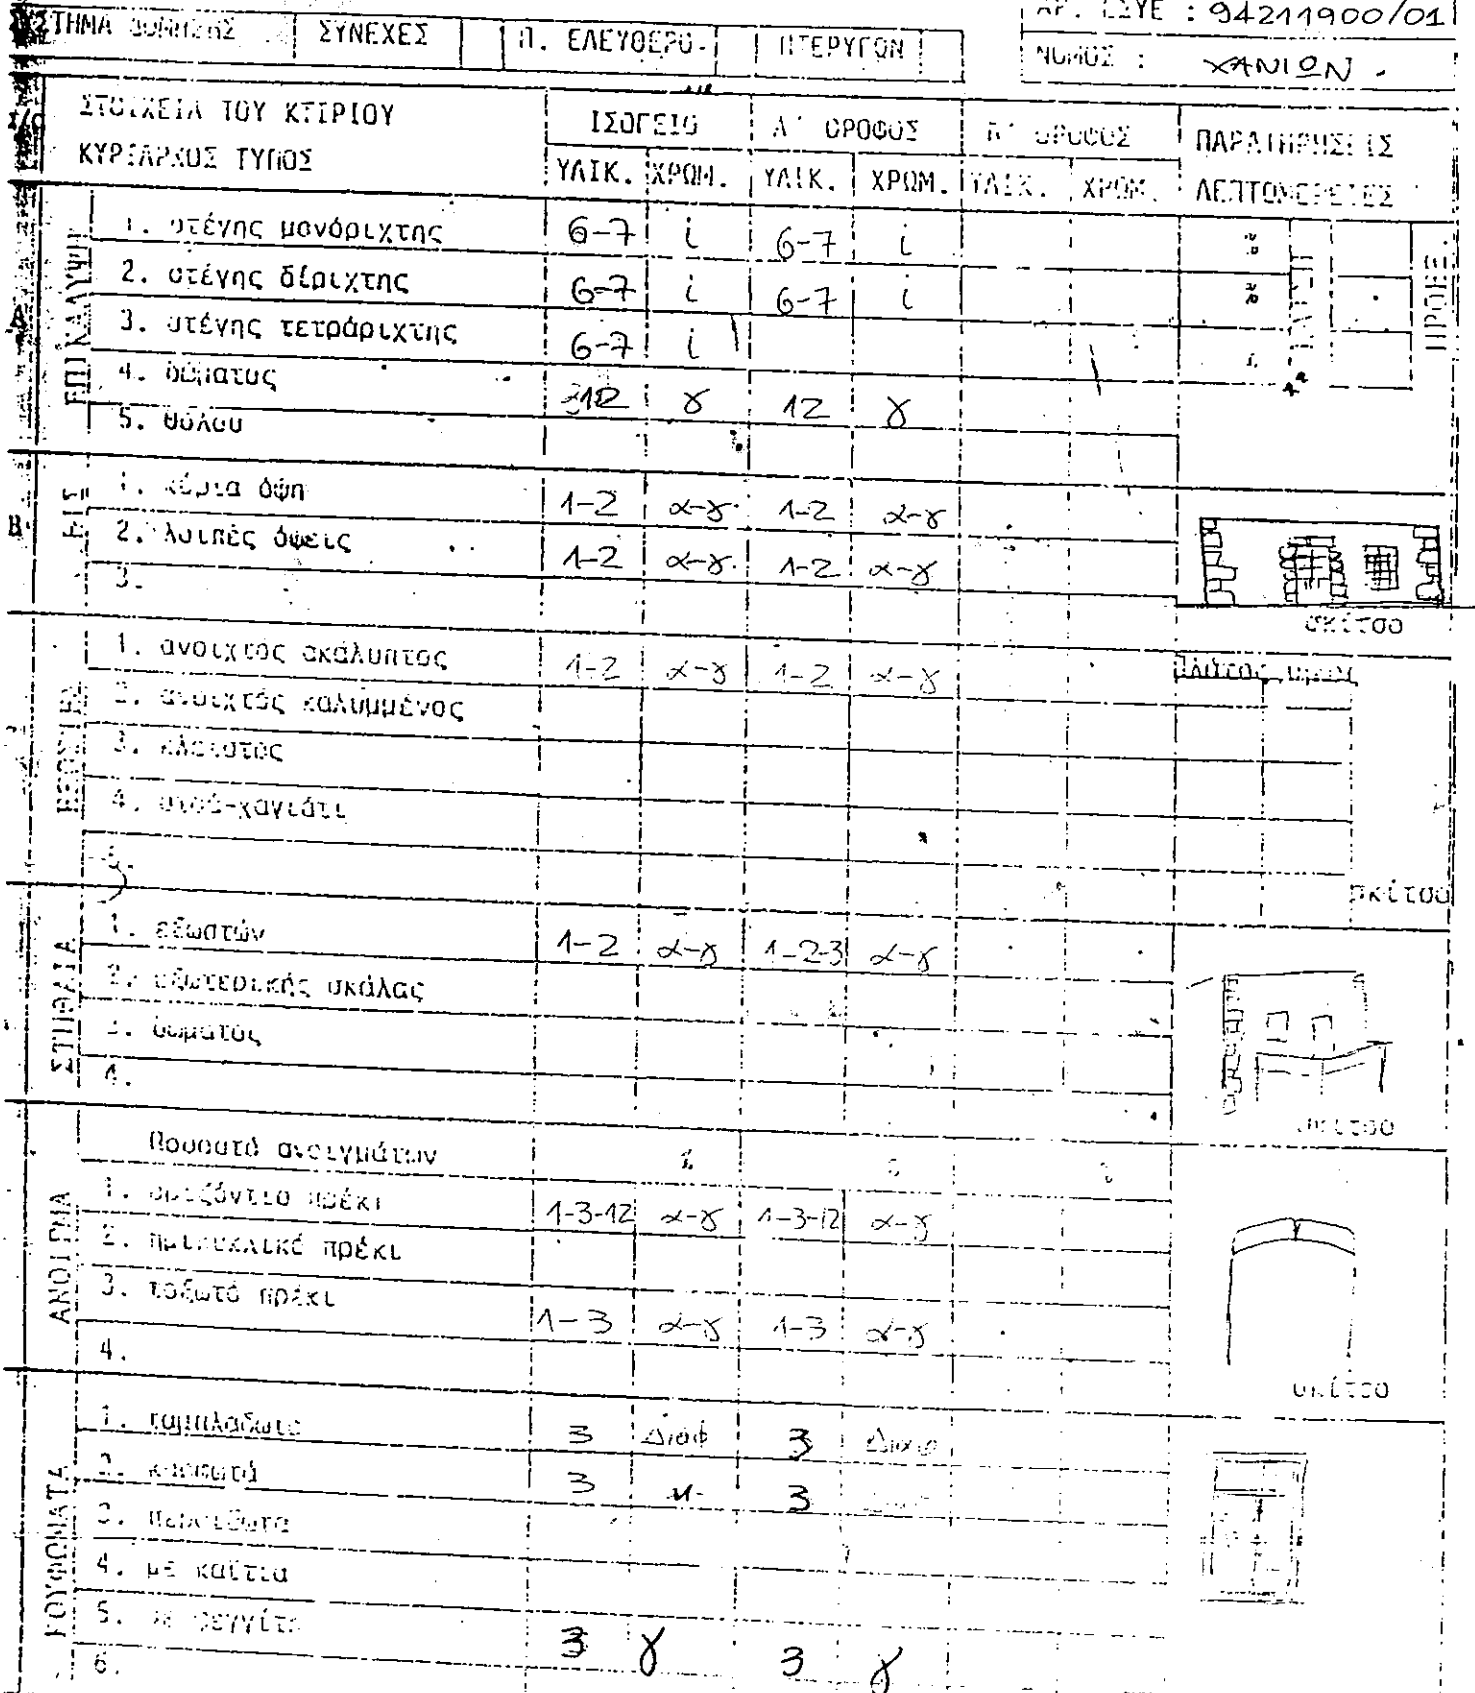 ΣΥΝΕΧΕΣ Π. ΕΛΕΥΘΕΡΟ. ΠΤΕΡΥΓΩΝ
: 94211900/01
ΝΟΜΟΣ : ΧΑΝΙΩΝ.
ΣΤΟΙΧΕΙΑ ΤΟΥ ΚΤΙΡΙΟΥ ΙΣΟΓΕΙΟ Α' ΟΡΟΦΟΣ Β' ΟΡΟΦΟΣ ΠΑΡΑΤΗΡΗΣΕΙΣ
ΚΥΡΙΑΡΧΟΣ ΤΥΠΟΣ ΥΛΙΚ. ΧΡΩΜ. ΥΛΙΚ. ΧΡΩΜ. ΥΛΙΚ. ΧΡΩΜ. ΛΕΠΤΟΜΕΡΕΙΕΣ
Α
1. στέγης μονόριχτης 6-7 i 6-7 i
2. στέγης δίριχτης 6-7 i 6-7 i
3. στέγης τετράριχτης 6-7 i
4. δώματος 12 γ 12 γ
5. θόλου
Β
1. κύρια όψη 1-2 α-γ 1-2 α-γ
2. λοιπές όψεις 1-2 α-γ 1-2 α-γ
3.
σκίτσο
1. ανοιχτός ακάλυπτος 1-2 α-γ 1-2 α-γ
2. ανοιχτός καλυμμένος
3. κλειστός
4. στοά-χαγιάτι
5.
σκίτσο
ΣΤΗΘΑΙΑ
1. εξωστών 1-2 α-γ 1-2-3 α-γ
2. εξωτερικής σκάλας
3. δώματος
4.
σκίτσο
ΑΝΟΙΓΜΑ
Ποσοστό ανοιγμάτων
1. οριζόντιο πρέκι 1-3-12 α-γ 1-3-12 α-γ
2. ημικυκλικό πρέκι
3. τοξωτό πρέκι 1-3 α-γ 1-3 α-γ
4.
σκίτσο
ΚΟΥΦΩΜΑΤΑ
1. ταμπλαδωτά 3 Διάφ 3 Διάφ
2. καρφωτά 3 3
3.
4. με καΐτια
5. με φεγγίτη 3 γ 3 γ
6.